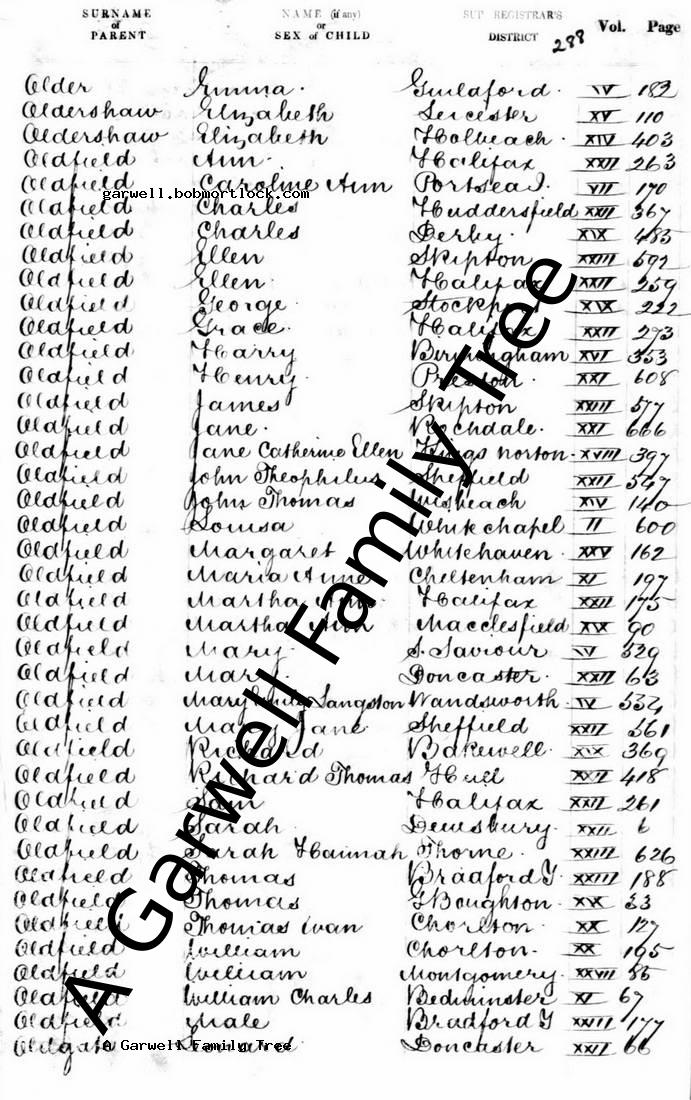 SURNAME of PARENT NAME (if any) or SEX of CHILD SUP REGISTRAR'S DISTRICT Vol. Page
288
Older Emma Guildford XV 182
Oldershaw Elizabeth Leicester XV 110
Oldershaw Elizabeth Holbeach XIV 403
Oldfield Ann Halifax XXII 263
Oldfield Caroline Ann Portsea I. VII 170
garwell.bobmortlock.com
Oldfield Charles Huddersfield XXII 367
Oldfield Charles Derby XIX 485
Oldfield Ellen Skipton XXIII 592
Oldfield Ellen Halifax XXII 259
Oldfield George Stockport XIX 222
Oldfield Grace Halifax XXII 293
Oldfield Harry Birmingham XVI 353
Oldfield Henry Preston XXI 608
Oldfield James Skipton XXIII 577
Oldfield Jane Rochdale XXI 666
Oldfield Jane Catherine Ellen Kings Norton XVIII 397
Oldfield John Theophilus Sheffield XXII 547
Oldfield John Thomas Wisbeach XIV 140
Oldfield Louisa Whitechapel II 600
Oldfield Margaret Whitehaven XXV 162
Oldfield Maria Anne Cheltenham XI 197
Oldfield Martha Ann Halifax XXII 175
Oldfield Martha Ann Macclesfield XIX 90
Oldfield Mary S. Saviour IV 529
Oldfield Mary Doncaster XXII 63
Oldfield Mary Langston Wandsworth IV 534
Oldfield Mary Jane Sheffield XXII 561
Oldfield Richard Bakewell XIX 369
Oldfield Richard Thomas Hull XXII 418
Oldfield Sam Halifax XXII 261
Oldfield Sarah Dewsbury XXII 6
Oldfield Sarah Hannah Thorne XXIII 626
Oldfield Thomas Bradford Y XXIII 188
Oldfield Thomas G Boughton XX 33
Oldfield Thomas Ivan Chorlton XX 127
Oldfield William Chorlton XX 195
Oldfield William Montgomery XXVII 85
Oldfield William Charles Bedminster XI 67
Oldfield Male Bradford Y XXIII 177
Oldgate Doncaster XXII 66
A Garwell Family Tree
A Garwell Family Tree